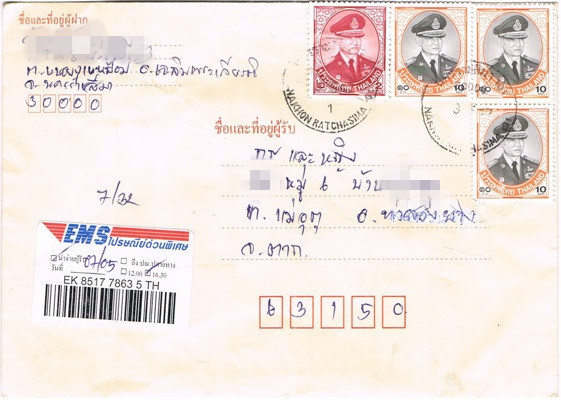 ชื่อและที่อยู่ผู้ฝาก
ต. หนองงูเหลือม อ. เฉลิมพระเกียรติ
จ. นครราชสีมา
30000
ประเทศไทย THAILAND
ประเทศไทย THAILAND
๑๐ 10
ประเทศไทย THAILAND
๑๐ 10
NAKHON RATCHASIMA
1
3
ประเทศไทย THAILAND
๑๐ 10
ชื่อและที่อยู่ผู้รับ
และ
หมู่ บ้าน
ต. แม่อุสุ อ. ท่าสองยาง
จ. ตาก
7/32
EMS ไปรษณีย์ด่วนพิเศษ
นำจ่ายผู้รับ 07/05 ถึง ปณ.ปลายทาง
วันที่ 12.00 16.30
EK 8517 7863 5 TH
63150